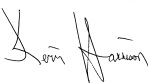 Kevin Harrison